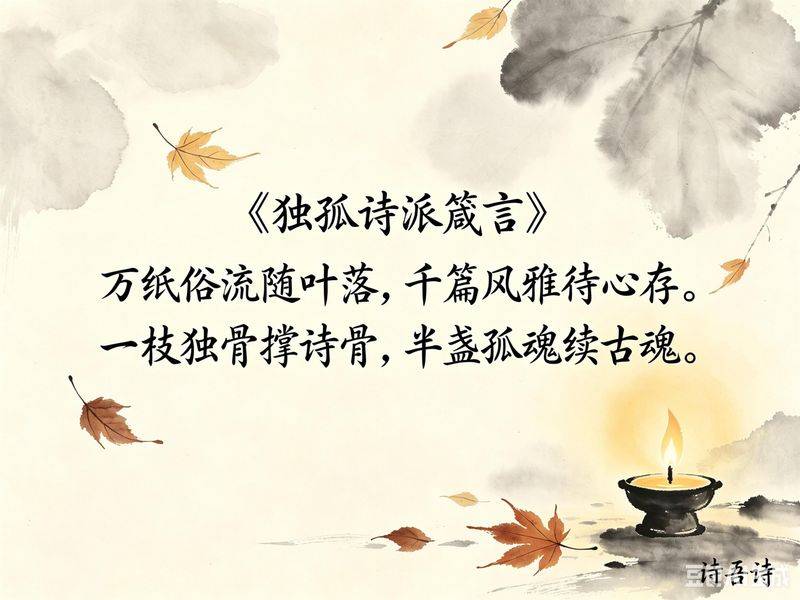 《独孤诗派箴言》
万纸俗流随叶落，千篇风雅待心存。
一枝独骨撑诗骨，半盏孤魂续古魂。
诗吾诗